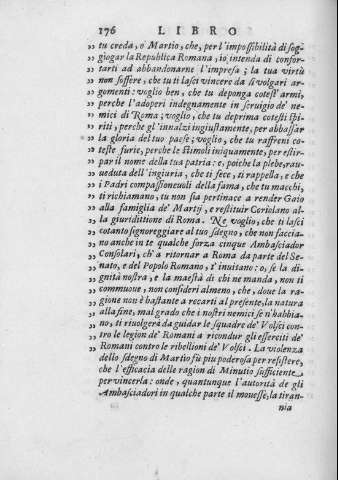 176 LIBRO
„ tu creda, o Martio, che, per l'impossibilità di sog-
„ giogar la Republica Romana, io, intenda di confor-
„ tarti ad abbandonarne l'impresa; la tua virtù
„ non soffere, che tu ti lasci vincere da sì volgari ar-
„ gomenti: voglio ben, che tu deponga cotest' armi,
„ perche l'adoperi indegnamente in seruigio de' ne-
„ mici di Roma; voglio, che tu deprima cotesti spi-
„ riti, perche gl'innalzi ingiustamente, per abbassar
„ la gloria del tuo paese; voglio, che tu raffreni co-
„ teste furie, perche le stimoli iniquamente, per estir-
„ par il nome della tua patria: e, poiche la plebe, rau-
„ ueduta dell'ingiuria, che ti fece, ti rappella, e che
„ i Padri compassioneuoli della fama, che tu macchi,
„ ti richiamano, tu non sia pertinace a render Gaio
„ alla famiglia de' Martij, e restituir Coriolano al-
„ la giuridittione di Roma. Ne voglio, che ti lasci
„ cotanto signoreggiare al tuo sdegno, che non faccia-
„ no anche in te qualche forza cinque Ambasciador
„ Consolari, ch' a ritornar a Roma da parte del Se-
„ nato, e del Popolo Romano, t'inuitano: o, se la di-
„ gnità nostra, e la maestà di chi ne manda, non ti
„ commuoue, non consideri almeno, che, doue la ra-
„ gione non è bastante a recarti al presente, la natura
„ alla fine, mal grado che i nostri nemici se n'habbia-
„ no, ti riuolgerà da guidar le squadre de' Volsci con-
„ tro le legion de' Romani a ricondur gli esserciti de'
„ Romani contro le ribellioni de' Volsci. La violenza
dello sdegno di Martio fù piu poderosa per resistere,
che l'efficacia delle ragion di Minutio sufficiente
per vincerla: onde, quantunque l'autorità de gli
Ambasciadori in qualche parte il mouesse, la tiran-
nia